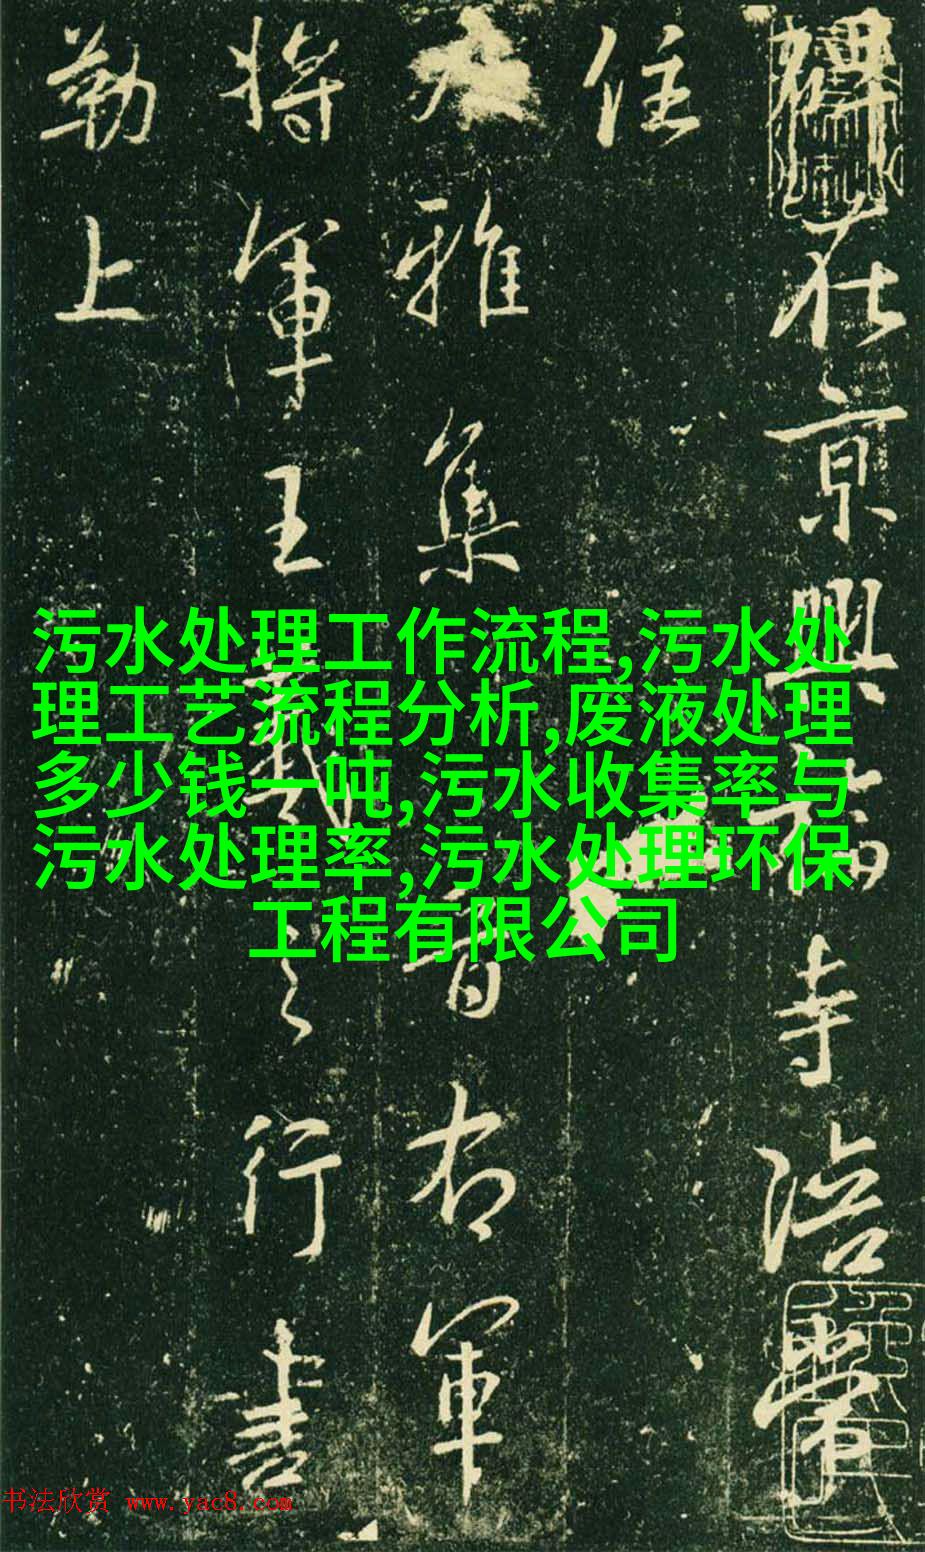 碑在京興福寺陪常
住
雅集晉右軍
將軍王羲之行書
勒上
污水处理工作流程,污水处
理工艺流程分析,废液处理
多少钱一吨,污水收集率与
污水处理率,污水处理环保
工程有限公司
书法欣赏 www.yac8.com